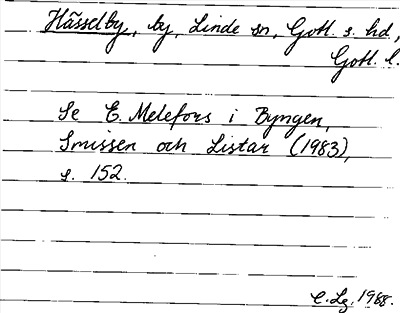 Hässelby, by, Linde sn, Gotl. s. hd,
Gotl. l.
Se E. Melefors i Byngen,
Smissen och Listar (1983),
s. 152.
C. Lg. 1988.